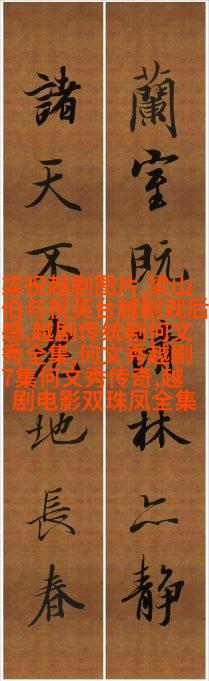 蘭室既林亦静
諸天不地長春
梁祝越剧图片,梁山
伯与祝英台越剧观后
感,越剧传统剧何文
秀全集,何文秀越剧
7集何文秀传奇,越
剧电影双珠凤全集